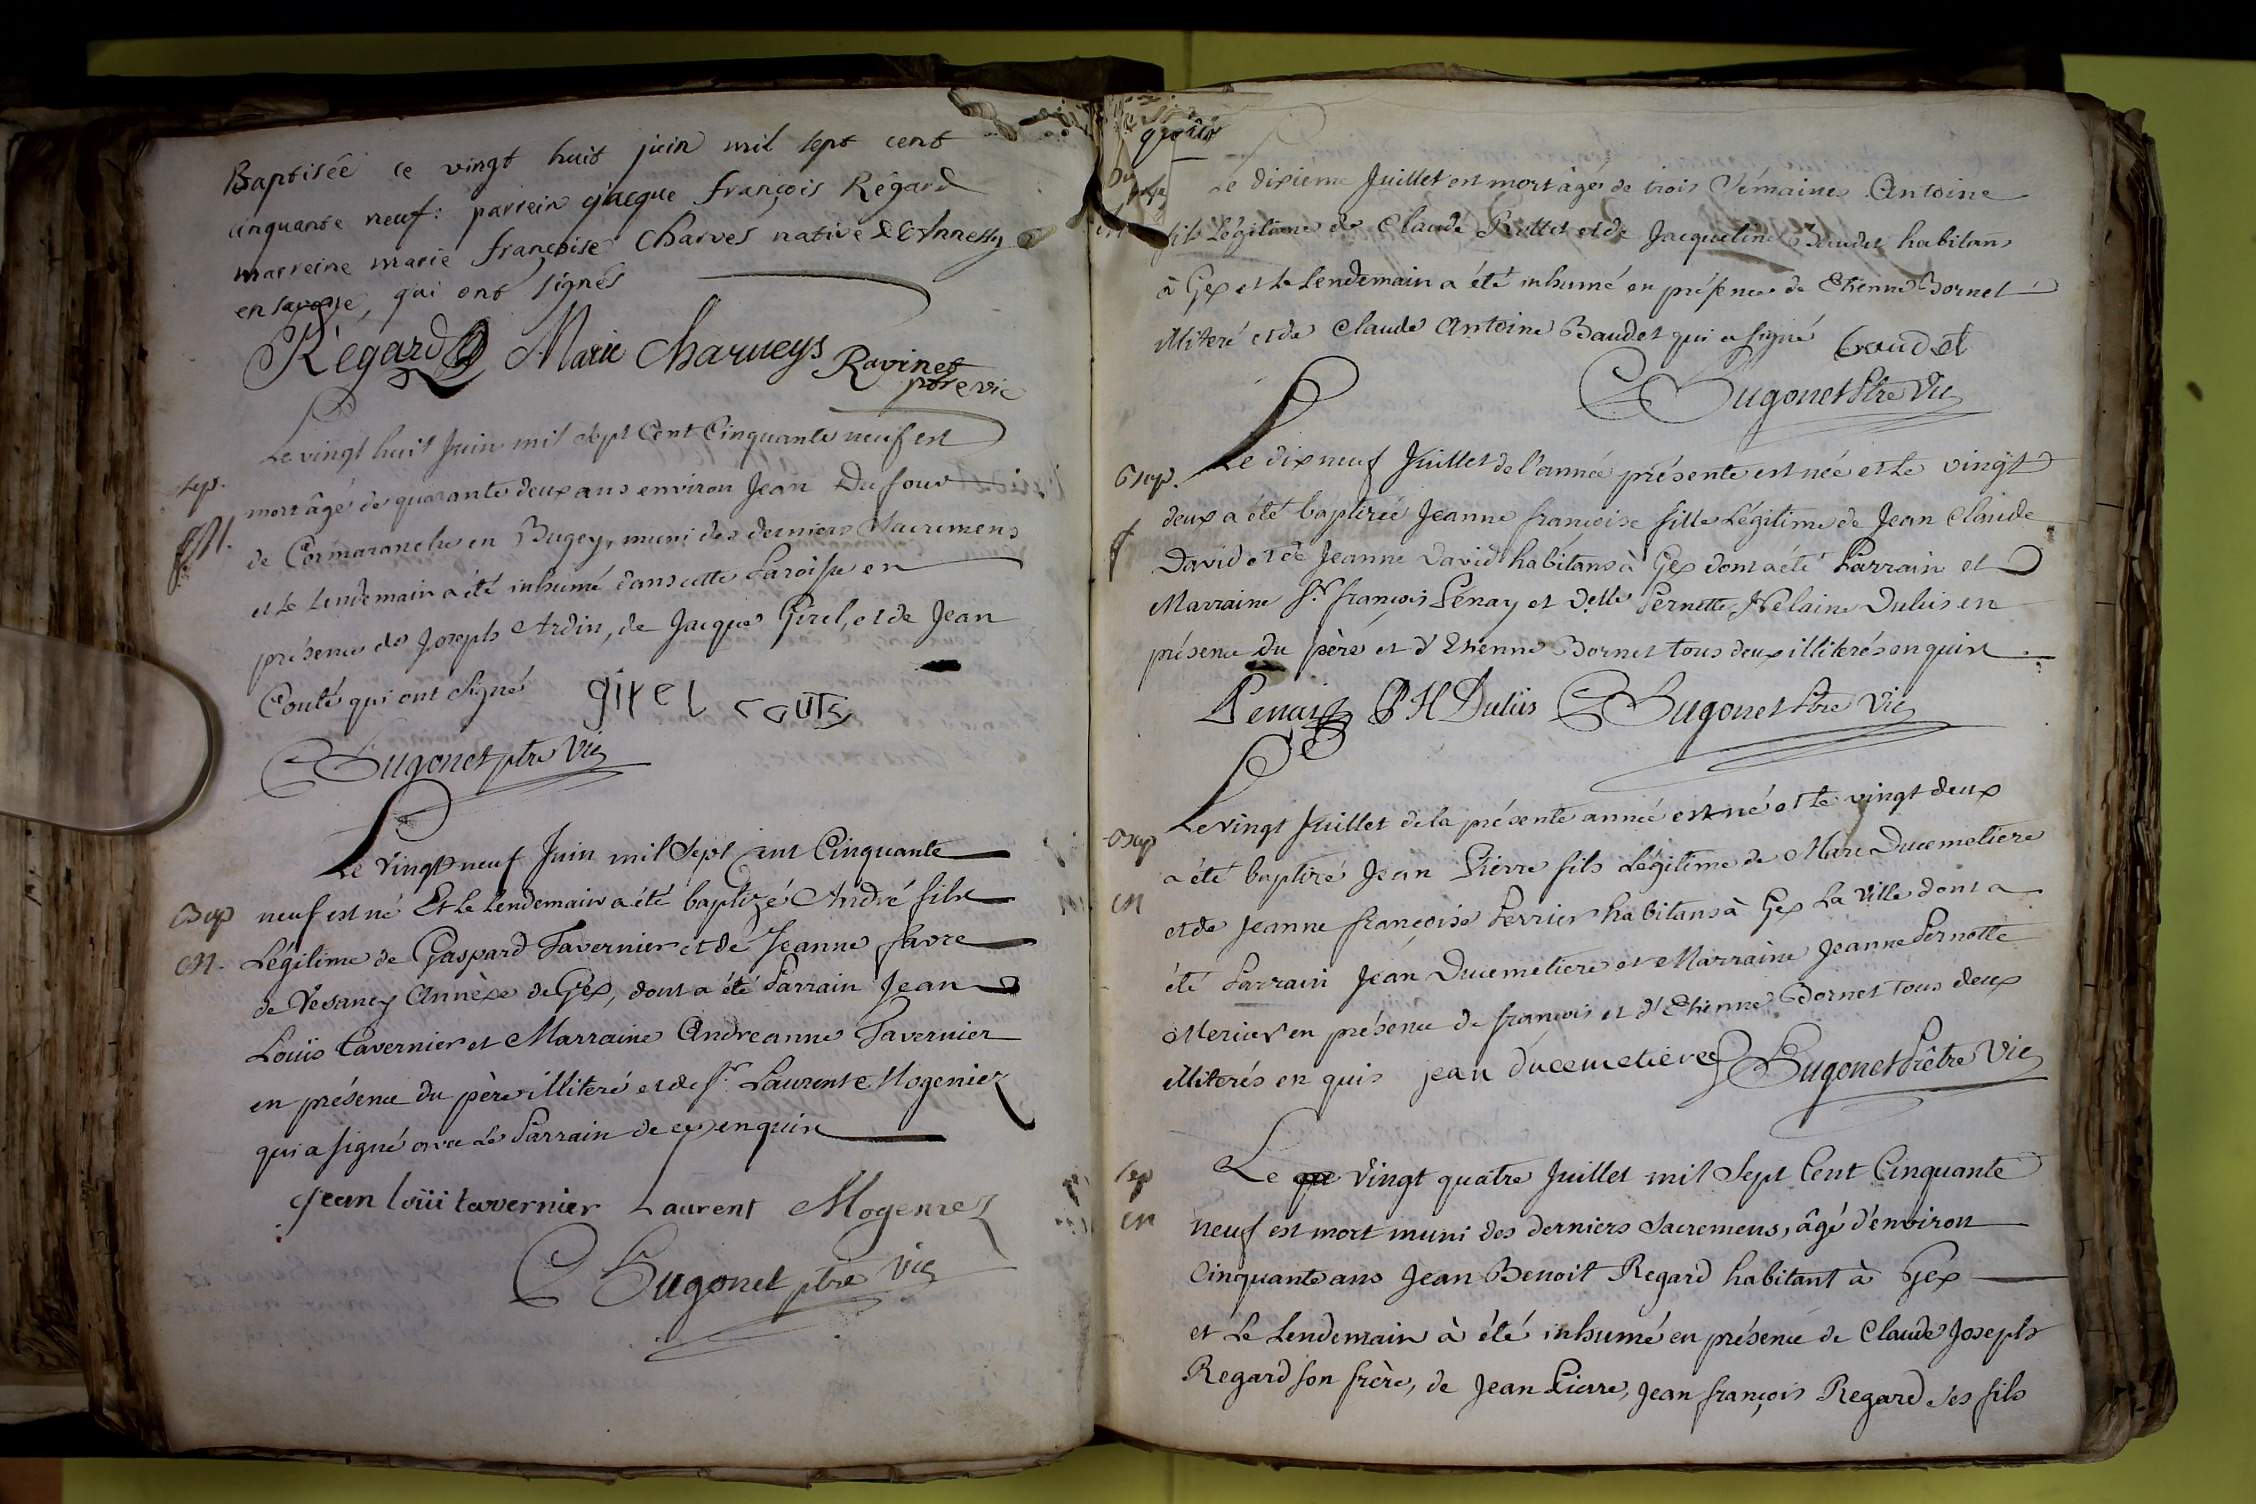 Baptisée ce vingt huit juin mil sept cent
cinquante neuf: parrein jacque françois Régard
marreine marie françoise Charves native d'Annessy
en savoye, qui ont signés
Régard Marie Charueys Ravinet
ptre vic
Le vingt huit Juin mil sept Cent Cinquante neuf est
sep.
mort âgé de quarante deux ans environ Jean Dufour
de Cormaranche en Bugey, muni des derniers Sacremens
et le lendemain a été inhumé dans cette Paroisse en
présence de Joseph Ardin, de Jacque Girel, et de Jean
Couté qui ont signé girel couts
Hugonet ptre Vic
Le vingt neuf Juin mil Sept cent Cinquante
Bap neuf est né Et le lendemain a été baptizé André fils
m. Légitime de Gaspard Tavernier et de Jeanne favre
de Vesancy Annèxe de Gex, dont a été Parrain Jean
Louïs Tavernier et Marraine Andreanne Tavernier
en présence du père illiteré et de sr. Laurent Mogenier
qui a signé avec le Parrain de ce enquis
jean loüi tavernier Laurent Mogenier
Hugonet ptre Vic
Le dixieme Juillet est mort âgé de trois Semaines Antoine
fils Légitime de Claude Rottet et de Jacqueline Baudet habitans
à Gex et le Lendemain a été inhumé en présence de Etienne Bornet
illiteré et de Claude Antoine Baudet qui a signé baudet
Hugonet Ptre Vic
Le dix neuf Juillet de l'année présente est née et le vingt
Bap.
deux a été baptizée Jeanne françoise fille Légitime de Jean Claude
f
David et de Jeanne David habitans à Gex dont a été Parrain et
Marraine sr. françois Pénay et delle Pernette Helaine Duluis en
présence du père et d'Etienne Bornet tous deux illiterés enquis
Penay P H Duluis Hugonet Ptre Vic
Le vingt Juillet de la présente année est né et le vingt deux
Bap a été baptizé Jean Pierre fils Légitime de Marc Ducemetiere
m et de Jeanne françoise Perrier habitans à Gex la Ville dont a
été Parrain Jean Ducemetiere et Marraine Jeanne Pernette
Mercier en présence de françois et d'Etienne Bornet tous deux
illiterés en quis jean ducemetiere Hugonet Prêtre Vic
sep Le vingt quatre Juillet mil Sept Cent Cinquante
m neuf est mort muni des derniers Sacremens, âgé d'environ
Cinquante ans Jean Benoit Regard habitant à Gex
et Le Lendemain à été inhumé en présence de Claude Joseph
Regard son frère, de Jean Pierre, Jean françois Regard ses fils